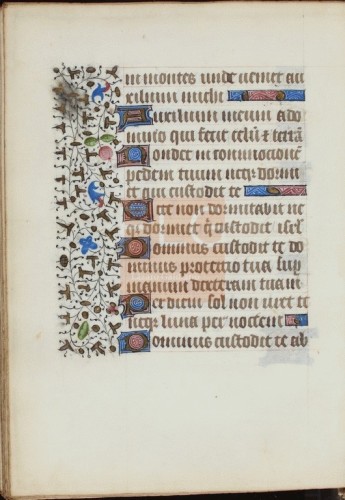 in montes unde veniet au
xilium michi
Auxilium meum a do
mino qui fecit celū & terā
Non det in commocionē
pedem tuum neqr dormit
et qui custodit te
Ecce non dormitabit ne
qr dormiet q̄ custodit isrl
Dominus custodit te do
minus protectio tua sup
manum dexteram tuam
Per diem sol non uret te
neqr luna per noctem
Dominus custodit te ab